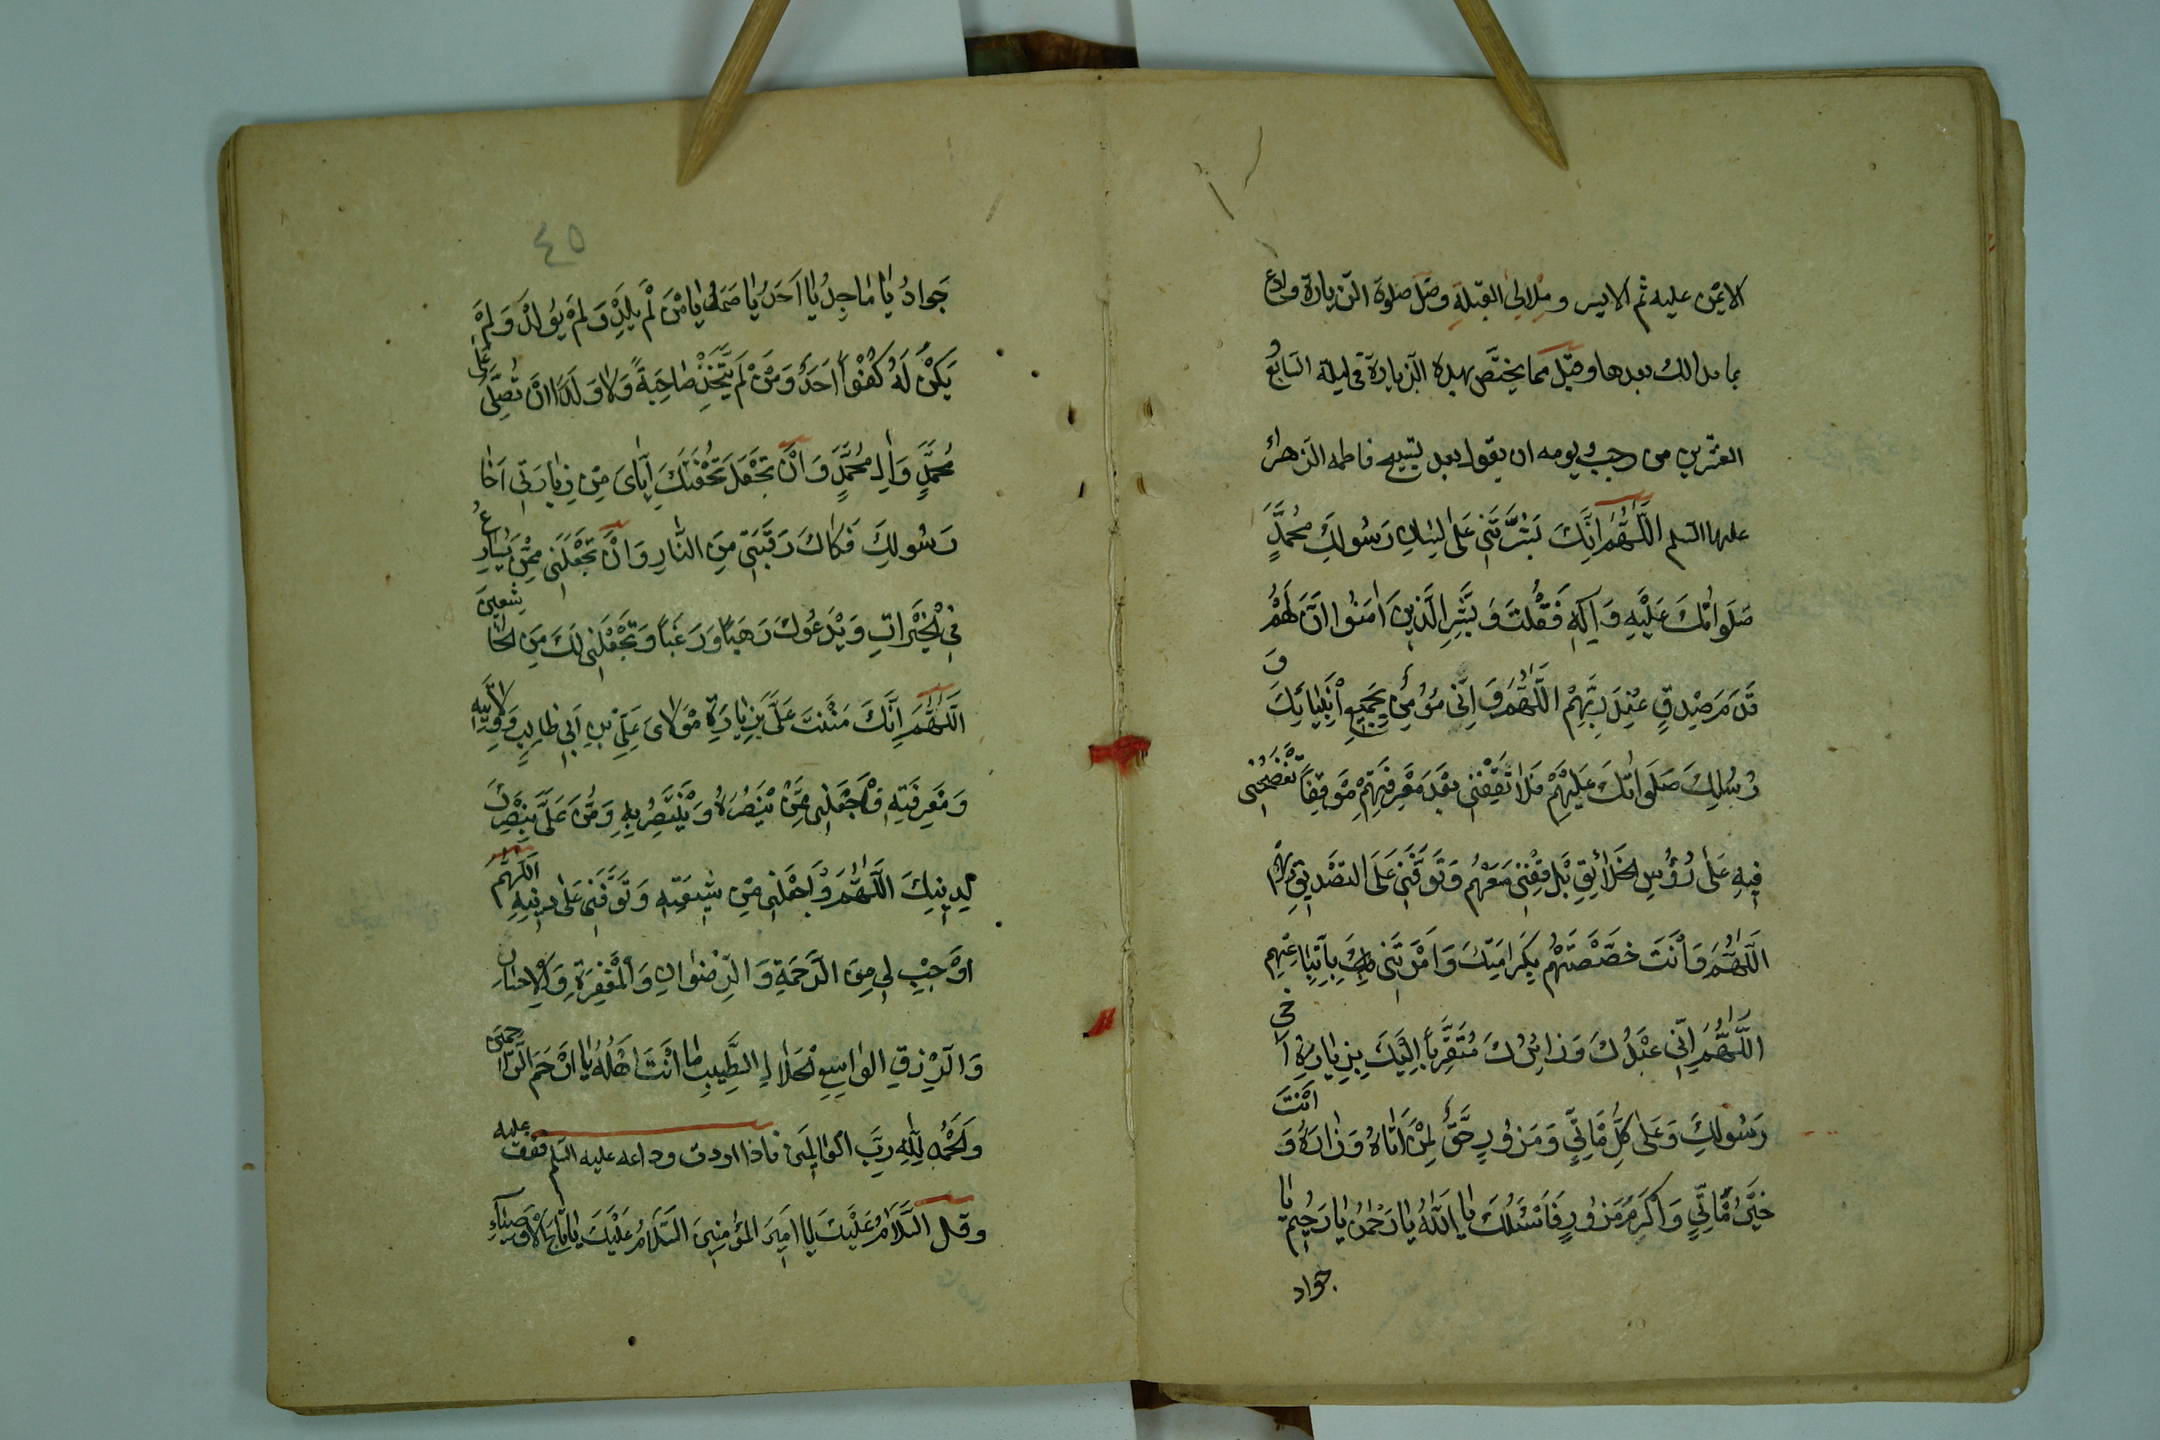 الايمن عليه ثم الايسر و مل الى القبلة وصل صلوة الزيارة وادع
بما بدالك بعدها وقيل مما يختص بهذه الزيارة فى ليلة السابع و
العشرين من رجب ويومه ان يقول بعد تسبيح فاطمه الزهراء
عليها السلم اَللّٰهُمَّ اِنَّكَ بَشَّرْتَنِي عَلىٰ لِسٰانِ رَسُولِكَ مُحَمَّدٍ
صَلَوٰاتُكَ عَلَيْهِ وَاٰلِهِ فَقُلْتَ وَبَشِّرِ الَّذِينَ اٰمَنُوا اَنَّ لَهُمْ
قَدَمَ صِدْقٍ عِنْدَ رَبِّهِمْ اَللّٰهُمَّ وَ اِنِّى مُؤْمِنٌ بِجَمِيعِ اَنْبِيٰائِكَ وَ
رُسُلِكَ صَلَوٰاتُكَ عَلَيْهِمْ فَلٰا تَقِفْنِي بَعْدَ مَعْرِفَتِهِمْ مَوْقِفًا تَفْضَحُنِي
فِيهِ عَلىٰ رُؤُسِ الْخَلٰائِقِ بَلْ قِفْنِي مَعَهُمْ وَتَوَفَّنِي عَلَى التَّصْدِيقِ بِهِمْ
اَللّٰهُمَّ وَاَنْتَ خَصَصْتَهُمْ بِكَرٰامَتِكَ وَاَمَرْتَنِي بِاتِّبٰاعِهِمْ
اَللّٰهُمَّ اِنِّي عَبْدُكَ وَزٰائِرُكَ مُتَقَرِّبًا اِلَيْكَ بِزِيٰارَةِ اَخِى
رَسُولِكَ وَعَلىٰ كُلِّ مَأْتِيٍّ وَمَزُورٍ حَقٌّ لِمَنْ اَتٰاهُ وَزٰارَهُ وَ اَنْتَ
خَيْرُ مَأْتِيٍّ وَاَكْرَمُ مَزُورٍ فَاَسْئَلُكَ يٰا اَللّٰهُ يٰا رَحْمٰنُ يٰا رَحِيمُ يٰا
جواد
٤٥
جَوادُ يٰا مٰاجِدُ يٰا اَحَدُ يٰا صَمَدُ يٰا مَنْ لَمْ يَلِدْ وَ لَمْ يُولَدْ وَ لَمْ
يَكُنْ لَهُ كُفُواً اَحَدٌ وَ مَنْ لَمْ يَتَّخِذْ صٰاحِبَةً وَلٰا وَلَدًا اَنْ تُصَلِّىَ عَلىٰ
مُحَمَّدٍ وَ اٰلِ مُحَمَّدٍ وَ اَنْ تَجْعَلَ تُحْفَتَكَ اِيّٰاىَ مِنْ زِيٰارَتِى اَخٰا
رَسُولِكَ فَكٰاكَ رَقَبَتِي مِنَ النّٰارِ وَ اَنْ تَجْعَلَنِي مِمَّنْ يُسٰارِعُ
فِي الْخَيْرٰاتِ وَ يَدْعُوكَ رَهَبًا وَ رَغَبًا وَ تَجْعَلَنِي لَكَ مِنَ الْخٰاشِعِينَ
اَللّٰهُمَّ اِنَّكَ مَنَنْتَ عَلَيَّ بِزِيٰارَةِ مَوْلاىَ عَلِيِّ بْنِ اَبِي طٰالِبٍ وَ وِلاَيَتِهِ
وَ مَعْرِفَتِهِ فَاجْعَلْنِي مِمَّنْ يَنْصُرُهُ وَ يَنْتَصِرُ بِهِ وَ مُنَّ عَلَيَّ بِنَصْرِكَ
لِدِينِكَ اَللّٰهُمَّ وَ اجْعَلْنِي مِنْ شِيعَتِهِ وَ تَوَفَّنِي عَلىٰ دِينِهِ اَللّٰهُمَّ
اَوْجِبْ لِي مِنَ الرَّحْمَةِ وَ الرِّضْوٰانِ وَ الْمَغْفِرَةِ وَ الْاِحْسٰانِ
وَ الرِّزْقِ الْوٰاسِعِ الْحَلٰالِ الطَّيِّبِ مٰا اَنْتَ اَهْلُهُ يٰا اَرْحَمَ الرّٰاحِمِينَ
وَ الْحَمْدُ لِلّٰهِ رَبِّ الْعٰالَمِينَ فاذا اردت وداعه عليه السلم فقف عليه
و قل اَلسَّلَامُ عَلَيْكَ يٰا اَمِيرَ الْمُؤْمِنِينَ اَلسَّلَامُ عَلَيْكَ يٰا تٰاجَ الْاَوْصِيٰاءِ